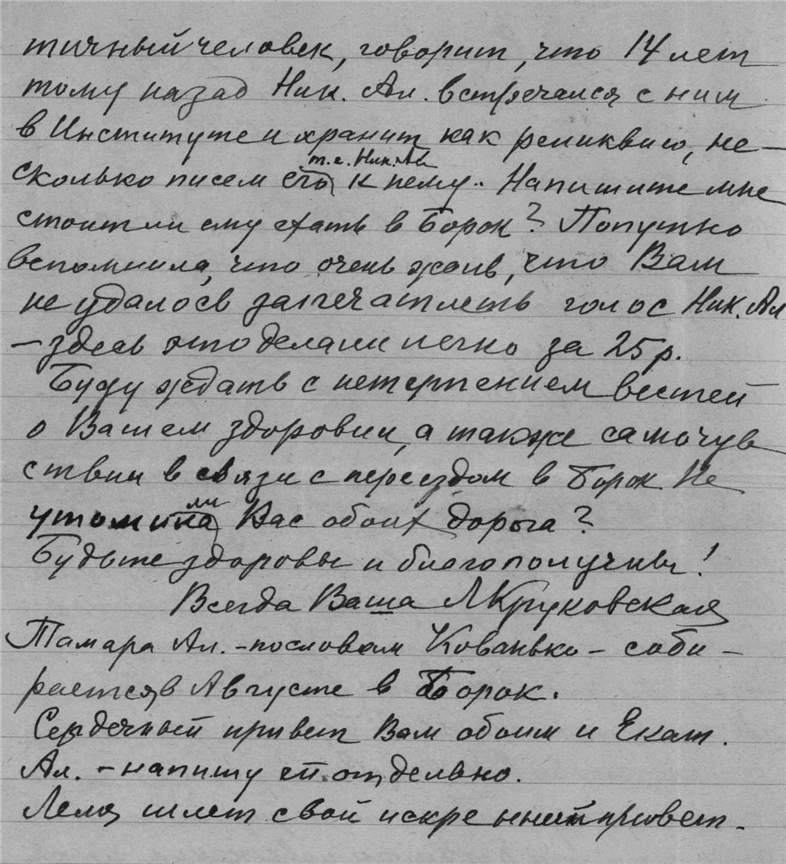 тичный человек, говорит, что 14 лет
тому назад Ник. Ал. встречался с ним
в Институте и хранит как реликвию, не-
т.е. Ник. Ал
сколько писем его к нему. Напишите мне
стоит ли ему ехать в Борок? Попутно
вспомнила, что очень жаль, что Вам
не удалось запечатлеть голос Ник. Ал
– здесь это делали легко за 25 р.
Буду ждать с нетерпением вестей
о Вашем здоровии, а также самочув
ствии в связи с переездом в Борок Не
ли
утомила Вас обоих дорога?
Будьте здоровы и благополучны!
Всегда Ваша Л Круковская
Тамара Ал. – по словам Кованько – соби-
рается в Августе в Борок.
Сердечный привет Вам обоим и Екат.
Ал. – напишу ей отдельно.
Леля шлет свой искренний привет.